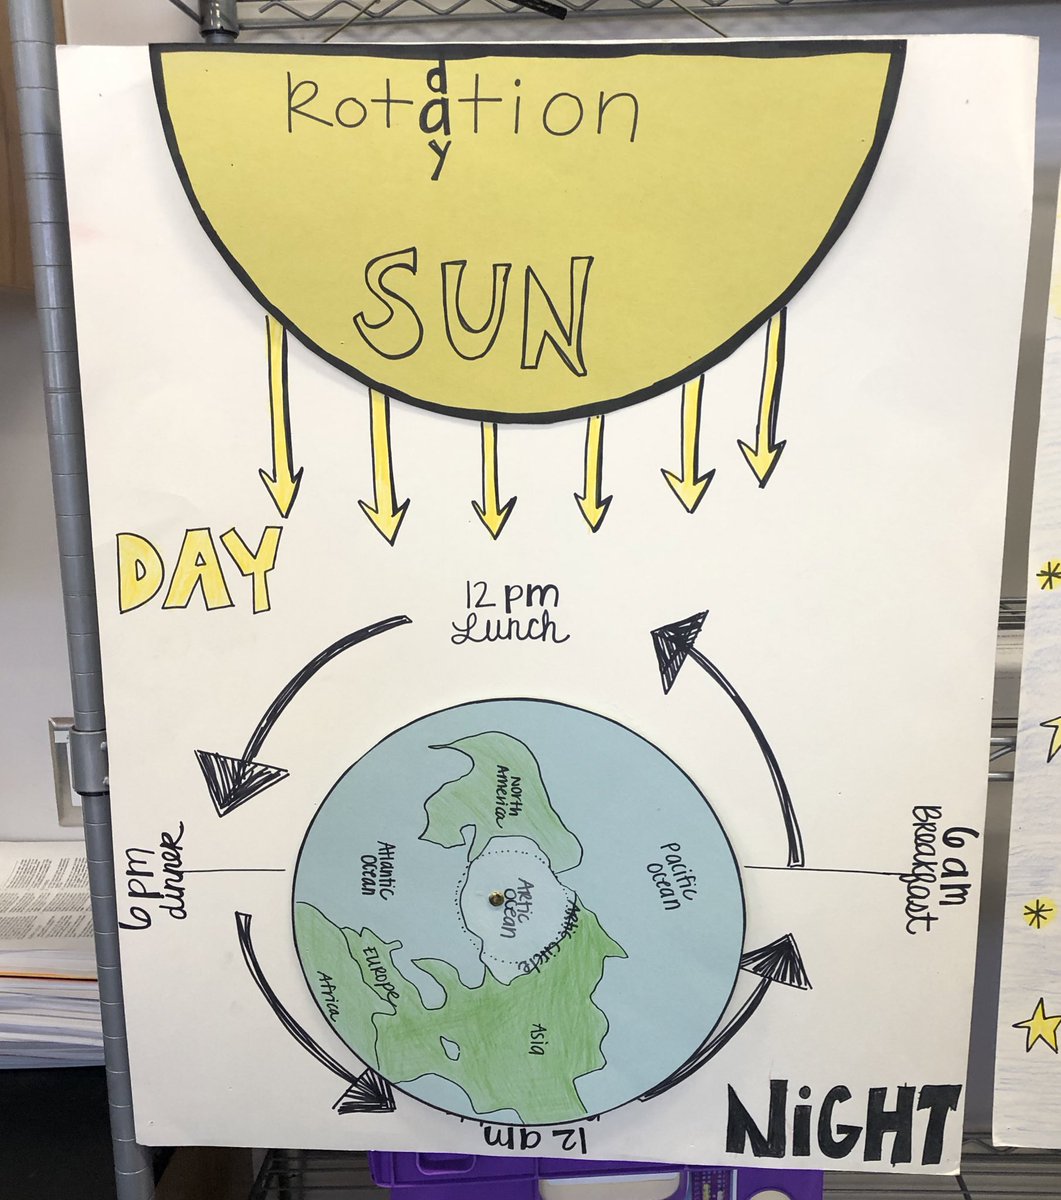 Rotation
day
SUN
DAY
12 pm
Lunch
6 pm
dinner
6 am
Breakfast
North
America
Atlantic
Ocean
Pacific
Ocean
Artic
Ocean
Artic Circle
EUROPE
Africa
Asia
12 am
NiGHT